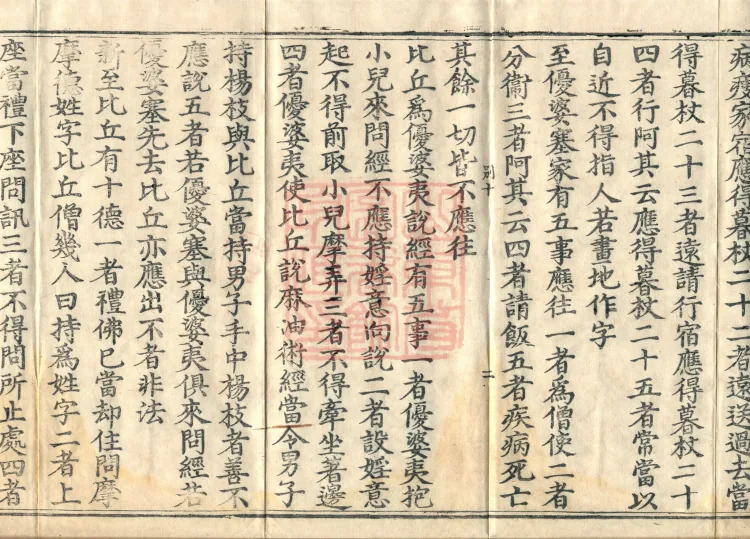 病瘦家宿應得暮杖二十二者遠送過去當
得暮杖二十三者遠請行宿應得暮杖二十
四者行阿其云應得暮杖二十五者常當以
自近不得指人若畫地作字
至優婆塞家有五事應往一者為僧使二者
分衞三者阿其云四者請飯五者疾病死亡
其餘一切皆不應往
別十
二
比丘為優婆夷說經有五事一者優婆夷抱
小兒來問經不應持婬意向說二者設婬意
起不得前取小兒摩弄三者不得牽坐著邊
四者優婆夷使比丘說麻油術經當令男子
持楊枝與比丘當持男子手中楊枝者善不
應說五者若優婆塞與優婆夷俱來問經若
優婆塞先去比丘亦應出不者非法
新至比丘有十德一者禮佛已當却住問摩
摩德姓字比丘僧幾人曰持為姓字二者上
座當禮下座問訊三者不得問所止處四者